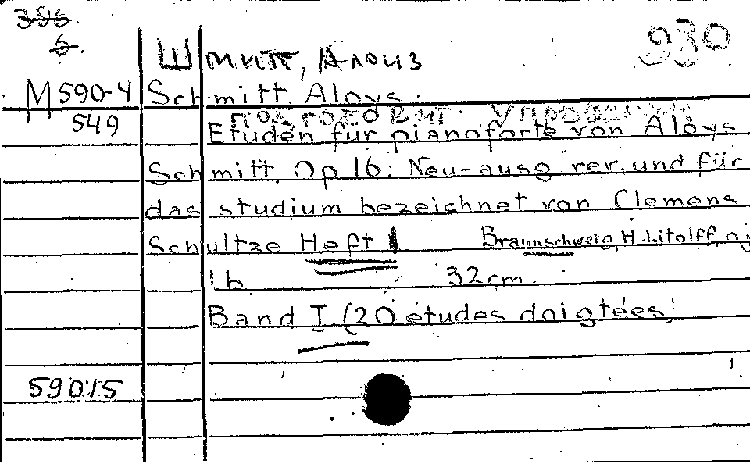 356
6.
Шмитт, Алоиз
930
M 590-4
549
Schmitt, Aloys.
Etüden für pianoforte von Aloys
Schmitt. Op 16. Neu-ausg rev. und für
das studium bezeichnet von Clemens
Schultze Heft 1 Braunschweig, H. Litolff, o j
32 cm.
Band I (20 études doigtées)
59015